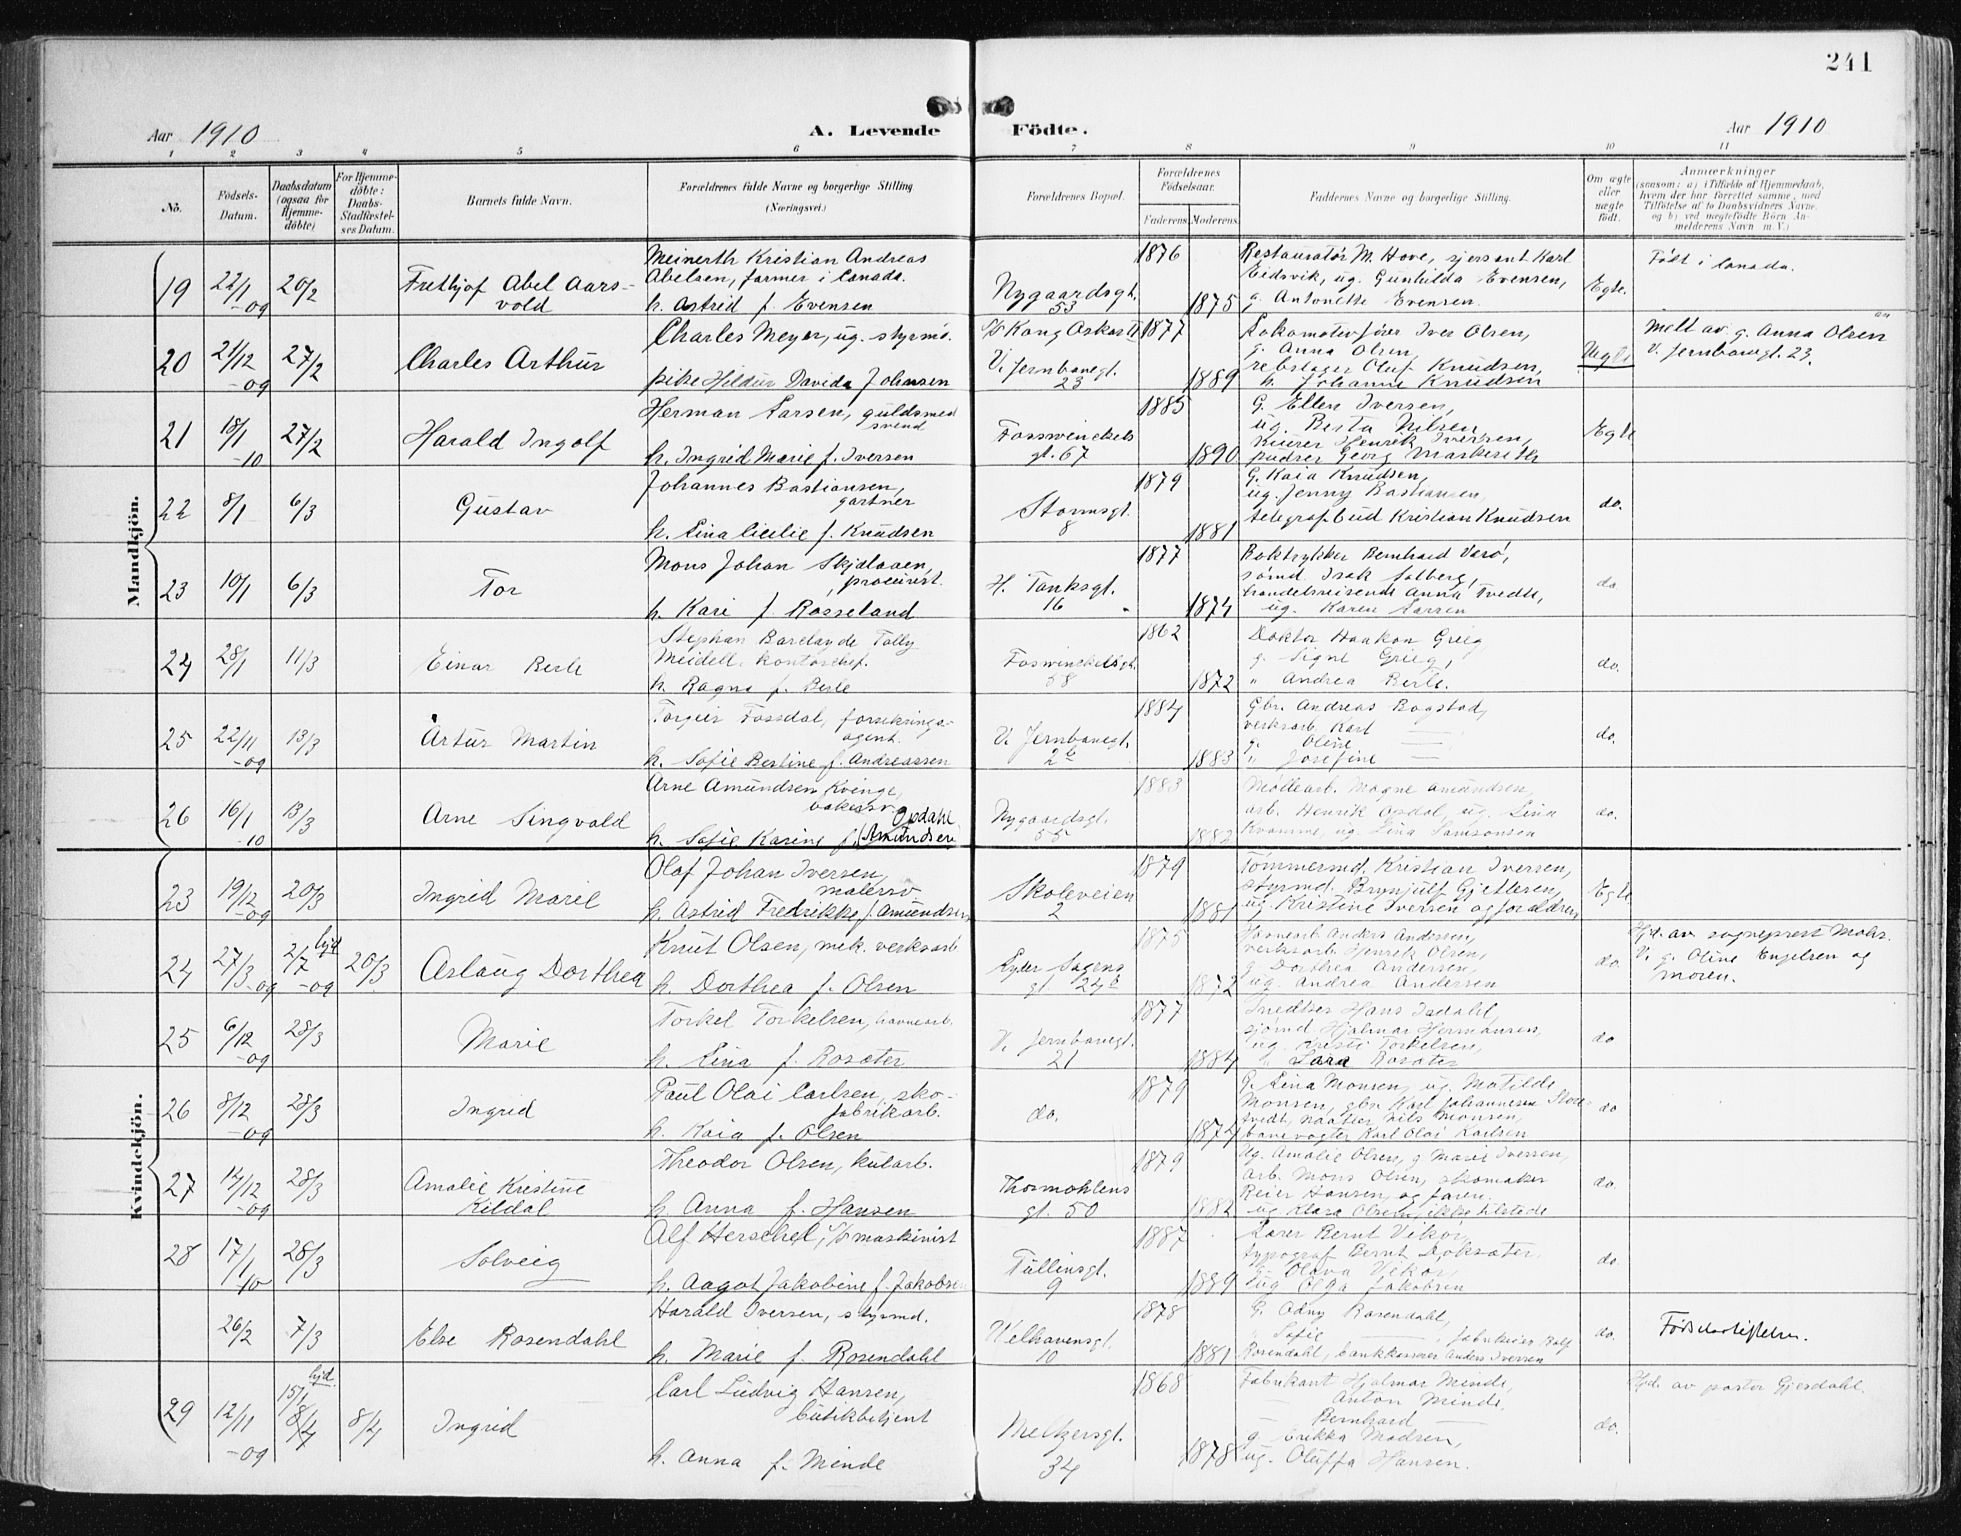 241
Aar 1910
A. Levende
Födte.
Aar 1910
1 2 3 4 5 6 7 8 9 10 11
No.
Födsels-Datum.
Daabsdatum (ogsaa for Hjemme-döbte)
For Hjemme-döbte: Daabs-Stadfæstel-ses Datum.
Barnets fulde Navn.
Forældrenes fulde Navne og borgerlige Stilling
(Næringsvei.)
Forældrenes Bopæl.
Forældrenes Födselsaar.
Faderens
Moderens
Faddernes Navne og borgerlige Stilling.
Om ægte eller uægte födt.
Anmærkninger
(saasom: a) i Tilfælde af Hjemmedaab,
hvem der har forrettet samme, med
Tilföielse af to Daabsvidners Navne,
og b) ved uegtefödte Börn An-
melderens Navn m. V.)
Mandkjön.
19 22/1 -09 20/2
Frethjof Abel Aars-
vold
Meinerth Kristian Andreas
Abelsen, farmer i Canada.
h. Astrid f. Evensen
Nygaardsgt.
53
1876
1875
Restauratør M. Hove, sjersant Karl
Eidsvik, ug. Gunhilda Evensen,
g. Antonette Evensen.
Egte.
Født i Canada.
20 21/12 -09 27/2
Charles Arthur
Charles Meyer, ug. styrmd.
pike Hildur Davida Johnsen
S/S Kong Oskar II
V. Jernbanegt.
23
1877
1889
Lokomotivfører Iver Olsen,
g. Anna Olsen,
rebslager Oluf Knudsen,
h. Johanne Knudsen
Uegte
Melt av g. Anna Olsen
V. Jernbanegt. 23.
21 18/1 -10 27/2
Harald Ingolf
Herman Larsen, guldsmed
svend
h. Ingrid Marie f. Iversen
Fosswinckels
gt. 67
1885
1890
G. Ellen Iversen,
ug. Berta Nilsen,
Kurer Henrik Iversen,
pudser Georg
Egte
22 8/1 6/3
Gustav
Johannes Bastiansen,
gartner
h. Lina Cicilie f. Knudsen
Stormsgt.
8
1879
1881
G. Kaia Knudsen,
ug. Jenny Bastiansen,
telegrafbud Kristian Knudsen
do.
23 10/1 6/3
Tor
Mons Johan Skjelaaen,
procurist.
h. Kari f. Røsseland
H. Tanksgt.
16
1877
1874
Boktrykker Bernhard
sømd. Isak Solberg,
handelsreisende Anna Tvedte,
ug. Karen Larsen
do
24 28/1 11/3
Einar Berle
Stephan Barclay de Tolly
Meidell, kontorchef.
h. Ragna f. Berle
Foswinckelsgt.
58
1862
1872
Doktor Haakon Grieg
g. Signe Grieg,
" Andrea Berle.
do.
25 22/11 -09 13/3
Artur Martin
Torgeir Fossdal, forsikrings-
agent.
h. Sofie Bertine f. Andreassen
V. Jernbanegt.
2b
1884
1883
Gbr. Andreas Bogstad,
verksarb. Karl
g. Oline —
" Josefine —
do.
26 16/1 -10 13/3
Arne Singvald
Arne Amundsen Kvinge,
bakersv.
Opdahl
h. Sofie Karine f. (Amundsen)
Nygaardsgt.
55
1883
1882
Møllearb. Magne Amundsen,
arb. Henrik Opdal, ug. Lina
Kvamme, ug. Lina Samsonsen
do.
Kvindekjön.
23 19/12 -09 20/3
Ingrid Marie
Olaf Johan Iversen,
malersv
h. Astrid Fredrikke f. Amundsen
Skoleveien
2
1879
1881
Tømmermd. Kristian Iversen,
styrmd. Brynjulf Gjertsen,
ug. Kristine Iversen og foraldrene
Egte
24 27/3 -09 hjd 2/7 -09 20/3
Aslaug Dorthea
Knut Olsen, mek. verksarb
h. Dorthea f. Olsen
Lyder Sagens
gt. 24b
1875
1872
Havnearb Anders Andersen,
verksarb. Henrik Olsen,
g. Dorthea Andersen,
ug. Andrea Andersen
do.
Hjd. av sogneprest Mohr.
V. g. Oline Engelsen og
moren.
25 6/12 -09 28/3
Marie
Torkel Torkelsen, havnearb.
h. Lina f. Rosæter
V. Jernbanegt.
21
1877
1884
Snedker Hans
sjømd. Hjalmar Hermansen,
ug. Kristi Torkelsen,
" Sara Rosæter
do
26 8/12 -09 28/3
Ingrid
Paul Olai Carlsen, sko-
fabrikarb.
h. Kaia f. Olsen
do.
1879
1874
G. Lina Monsen, ug. Matilde
Monsen, gbr Karl Johannesen Store-
tvedt, Nils Monsen,
banevogter Karl Olai Karlsen
do
27 12/12 -09 28/3
Amalie Kristine
Kildal
Theodor Olsen, kularb.
h. Anna f. Hansen
Thormøhlens
gt. 50
1879
1882
Ug. Amalie Olsen, g Marie Iversen,
arb. Mons Olsen, skomaker
Reier Hansen, og faren.
ug Klara Olsen, ikke tilstede
do.
28 17/1 -10 28/3
Solveig
Alf Herschel, S/S maskinist
h. Aagot Jakobine f. Jakobsen
Tullinsgt.
9
1887
1889
Lærer Bernt Vikør,
typograf Bernt Døksæter.
g. Olava Vikør,
ug. Olga Jakobsen
do.
26/2 7/3
Else Rosendahl
Harald Iversen, styrmd.
h. Marie f. Rosendahl
Welhavensgt.
10
1878
1881
G. Odny Rosendahl,
" Sofie — fabrikeier Rolf
Rosendahl, bankkasserer Anders Iversen
do.
Fødselsstiftelsen.
29 12/11 -09 hjd. 15/1 8/4 8/4
Ingrid
Carl Ludvig Hansen,
butikbetjent
h. Anna f. Minde
Meltzersgt.
34
1868
1878
Fabrikant Hjalmar Minde,
— Anton Minde,
— Bernhard —
g Erikka Madsen,
ug. Oluffa Hansen.
do.
Hjd. av pastor Gjesdahl.